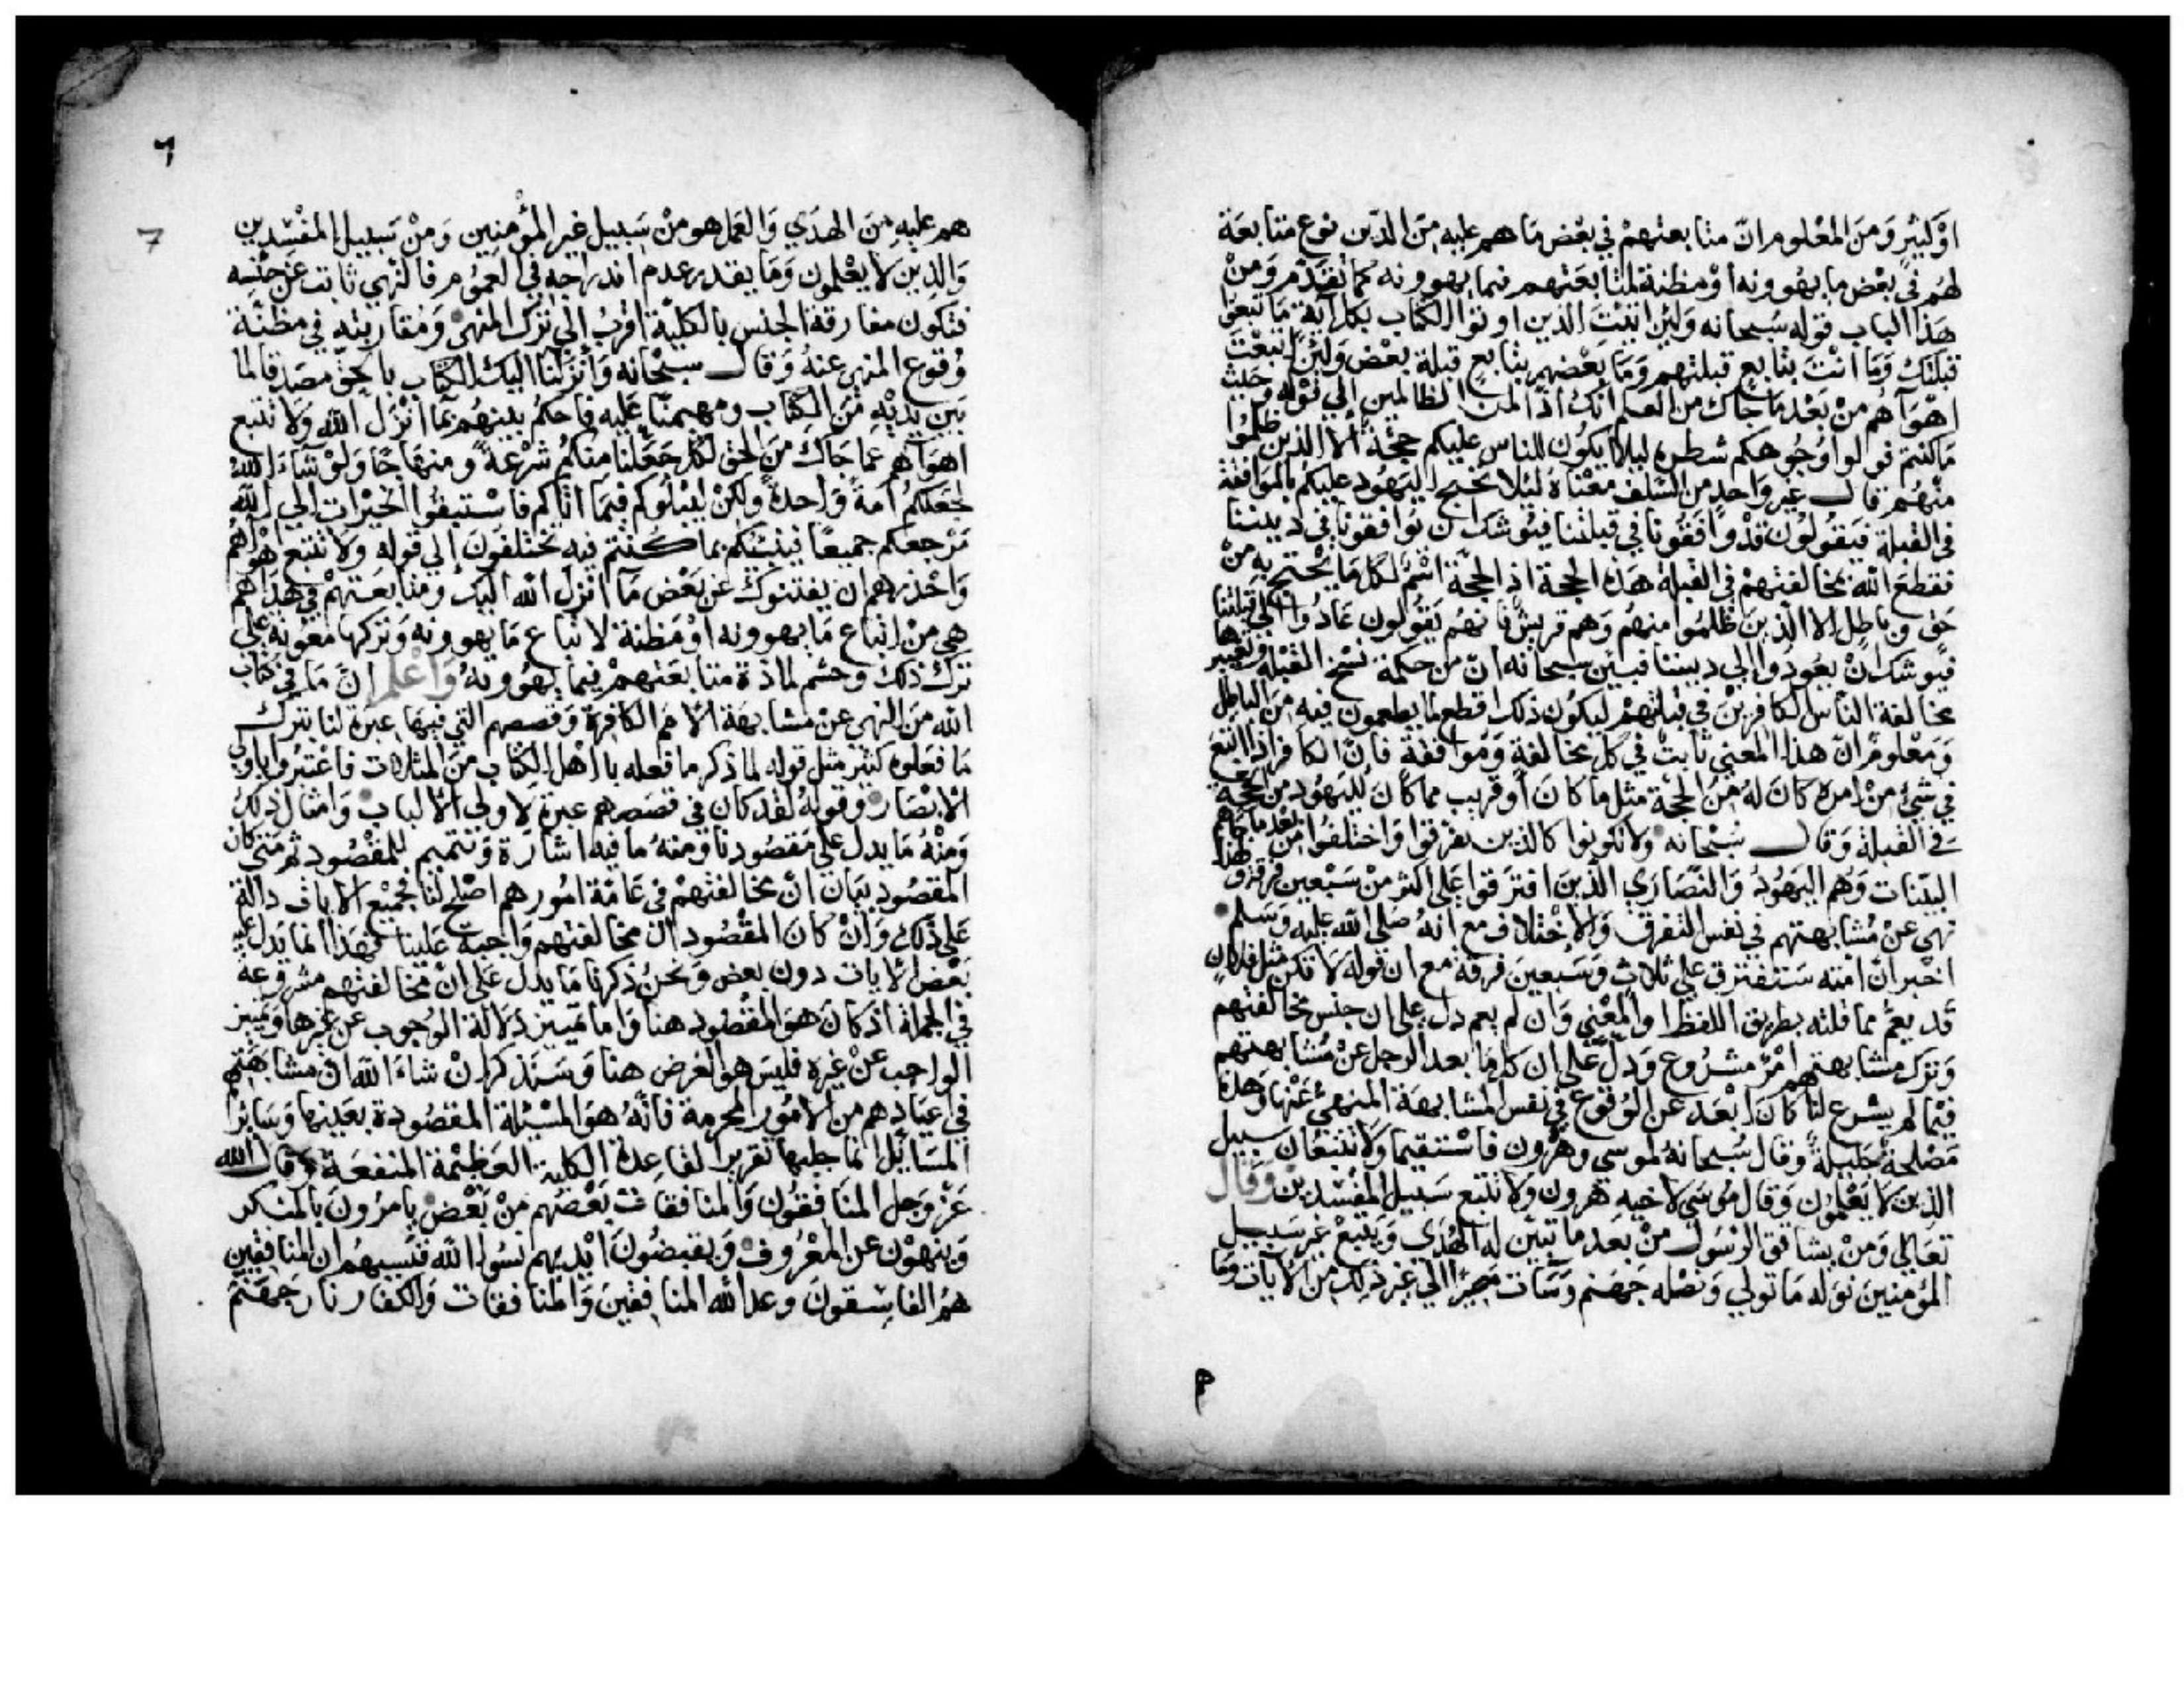 او كثير ومن المعلوم ان متابعتهم في بعض ما هم عليه من الدين نوع متابعة
لهم في بعض ما يهوونه او مظنة لمتابعتهم فيما يهوونه كما تقدم ومن
هذا الباب قوله سبحانه ولئن اتيت الذين اوتوا الكتاب بكل آية ما تبعوا
قبلتك وما انت بتابع قبلتهم وما بعضهم بتابع قبلة بعض ولئن اتبعت
اهوآهم من بعد ما جاك من العلم انك اذا لمن الظالمين الي قوله وحيث
ما كنتم فولوا وجوهكم شطره ليلا يكون للناس عليكم حجة الا الذين ظلموا
منهم قال غير واحد من السلف معناه لئلا تحتج اليهود عليكم بالموافقة
في القبلة فيقولون قد وافقونا في قبلتنا فيوشك ان يوافقونا في ديننا
فقطع الله بمخالفتهم في القبلة هذه الحجة اذ الحجة اسم لكل ما يحتج به من
حق وباطل الا الذين ظلموا منهم وهم قريش فانهم يقولون عادوا الي قبلتنا
فيوشك ان يعودوا الي ديننا فبين سبحانه ان من حكمة نسخ القبلة وتغييرها
مخالفة الناس الكافرين في قبلتهم ليكون ذلك اقطع لما يطمعون فيه من الباطل
ومعلوم ان هذا المعني ثابت في كل مخالفة وموافقة فان الكافر اذا اتبع
في شيء من امره كان له من الحجة مثل ما كان او قريب مما كان لليهود من الحجة
في القبلة وقال سبحانه ولا تكونوا كالذين تفرقوا واختلفوا من بعد ما جاهم
البينات وهم اليهود والنصاري الذين افترقوا علي اكثر من سبعين فرقة ولهذا
نهي عن مشابهتهم في نفس التفرق والاختلاف مع انه صلي الله عليه وسلم
اخبر ان امته ستفترق علي ثلاث وسبعين فرقة مع ان قوله لا تكن مثل فلان
قد يعم مماثلته بطريق اللفظ او المعني وان لم يعم دل علي ان جنس مخالفتهم
وترك مشابهتهم امر مشروع ودل علي ان كل ما بعد الرجل عن مشابهتهم
فيما لم يشرع لنا كان ابعد عن الوقوع في نفس المشابهة المنهي عنها وهذه
مصلحة جليلة وقال سبحانه لموسي وهرون فاستقيما ولا تتبعان سبيل
الذين لا يعلمون وقال موسي لاخيه هرون ولا تتبع سبيل المفسدين وقال
تعالي ومن يشاقق الرسول من بعد ما تبين له الهدي ويتبع غير سبيل
المؤمنين نوله ما تولي ونصله جهنم وسات مصيرا الي غير ذلك من الايات وما
٦
7
هم عليه من الهدي والعمل هو من سبيل غير المؤمنين ومن سبيل المفسدين
والذين لا يعلمون وما يقدر عدم اندراجه في العموم فالنهي ثابت عن جنسه
فتكون مفارقة الجنس بالكلية اقرب الي ترك المنهي ومقاربته في مظنة
وقوع المنهي عنه وقال سبحانه وانزلنا اليك الكتاب بالحق مصدقا لما
بين يديه من الكتاب ومهيمنا عليه فاحكم بينهم بما انزل الله ولا تتبع
اهوآهم عما جاك من الحق لكل جعلنا منكم شرعة ومنهاجا ولو شاء الله
لجعلكم امة واحدة ولكن ليبلوكم فيما اتاكم فاستبقوا الخيرات الي الله
مرجعكم جميعا فينبئكم بما كنتم فيه تختلفون الي قوله ولا تتبع اهوآهم
واحذرهم ان يفتنوك عن بعض ما انزل الله اليك ومتابعتهم في هديهم
هي من اتباع ما يهوونه او مظنة لاتباع ما يهوونه وتركها معونة علي
ترك ذلك وحسم لمادة متابعتهم فيما يهوونه واعلم ان ما في كتاب
الله من النهي عن مشابهة الامم الكافرة وقصصهم التي فيها عبرة لنا بترك
ما فعلوه كثير مثل قوله لما ذكر ما فعله باهل الكتاب من المثلات فاعتبروا يا اولي
الابصار وقوله لقد كان في قصصهم عبرة لاولي الالباب وامثال ذلك
ومنه ما يدل علي مقصودنا ومنه ما فيه اشارة وتتميم للمقصود ثم متي كان
المقصود بيان ان مخالفتهم في عامة امورهم اصلح لنا فجميع الايات دالة
علي ذلك وان كان المقصود ان مخالفتهم واجبة علينا فهذا انما يدل عليه
بعض الايات دون بعض ونحن ذكرنا ما يدل علي ان مخالفتهم مشروعة
في الجملة اذ كان هو المقصود هنا واما تمييز دلالة الوجوب عن غيرها وتمييز
الواجب عن غيره فليس هو الغرض هنا وسنذكر ان شاء الله ان مشابهتهم
في اعيادهم من الامور المحرمة فانه هو المسئلة المقصودة بعينها وسائر
المسائل انما جلبها تقرير القاعدة الكلية العظيمة المنفعة وقال الله
عز وجل المنافقون والمنافقات بعضهم من بعض يامرون بالمنكر
وينهون عن المعروف ويقبضون ايديهم نسوا الله فنسيهم ان المنافقين
هم الفاسقون وعد الله المنافقين والمنافقات والكفار نار جهنم